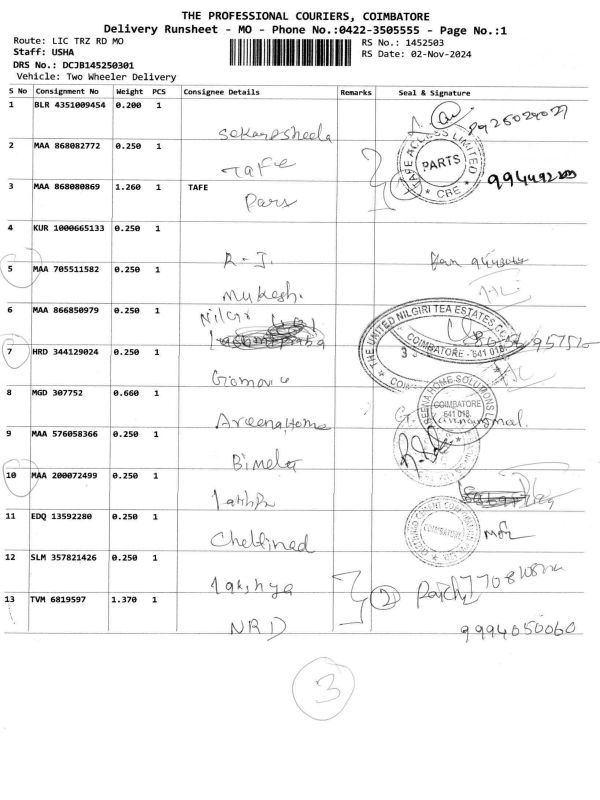 THE PROFESSIONAL COURIERS, COIMBATORE
Delivery Runsheet - MO - Phone No.:0422-3505555 - Page No.:1
Route: LIC TRZ RD MO
RS No.: 1452503
Staff: USHA
RS Date: 02-Nov-2024
DRS No.: DCJB145250301
Vehicle: Two Wheeler Delivery
S No Consignment No Weight PCS Consignee Details Remarks Seal & Signature
1 BLR 4351009454 0.200 1
2 MAA 868082772 0.250 1
TAFE ACCESS LIMITED PARTS * CBE *
Tafe
3 MAA 868080869 1.260 1 TAFE
Pars
4 KUR 1000665133 0.250 1
R - J.
5 MAA 705511582 0.250 1
Mukesh.
6 MAA 866850979 0.250 1
Nilgiri
THE UNITED NILGIRI TEA ESTATES CO COIMBATORE - 641 018
7 HRD 344129024 0.250 1
8 MGD 307752 0.660 1
REENA HOME SOLUTIONS COIMBATORE 641 018.
Areena Home
9 MAA 576058366 0.250 1
Bimela
10 MAA 200072499 0.250 1
11 EDQ 13592280 0.250 1
COIMBATORE
Chettinad
12 SLM 357821426 0.250 1
Lakshya
2
13 TVM 6819597 1.370 1
NRD
9994050060
3